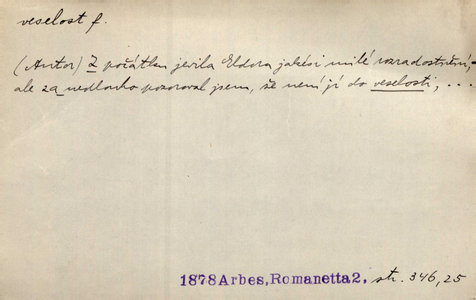 veselost f.
(Autor) Z počátku jevila Eldora jakési milé rozradostnění,
ale za nedlouho pozoroval jsem, že není jí do veselosti, ...
1878 Arbes, Romanetta 2, str. 346, 25